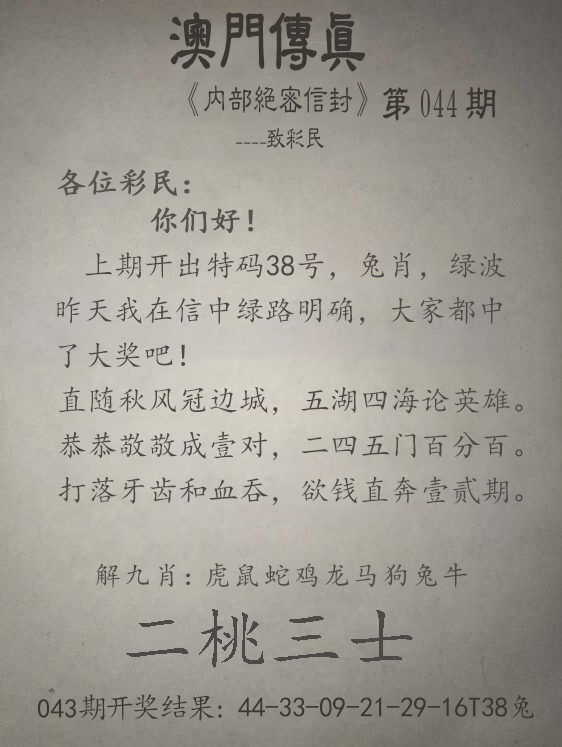 澳門傳眞
《内部絕密信封》第044期
----致彩民
各位彩民：
你们好！
上期开出特码38号，兔肖，绿波
昨天我在信中绿路明确，大家都中
了大奖吧！
直随秋风冠边城，五湖四海论英雄。
恭恭敬敬成壹对，二四五门百分百。
打落牙齿和血吞，欲钱直奔壹贰期。
解九肖：虎鼠蛇鸡龙马狗兔牛
二桃三士
043期开奖结果：44-33-09-21-29-16T38兔